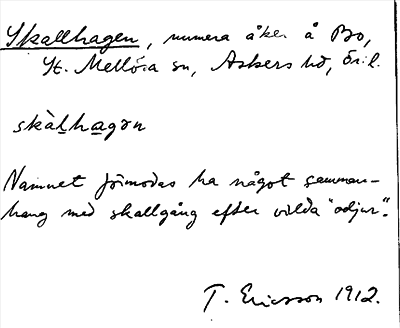 Skallhagen, numera åker å Bo,
St. Mellösa sn, Askers hd, Ör. l.
skàlhagən
Namnet förmodas ha något samman-
hang med skallgång efter vilda "odjur".
T. Ericsson 1912.